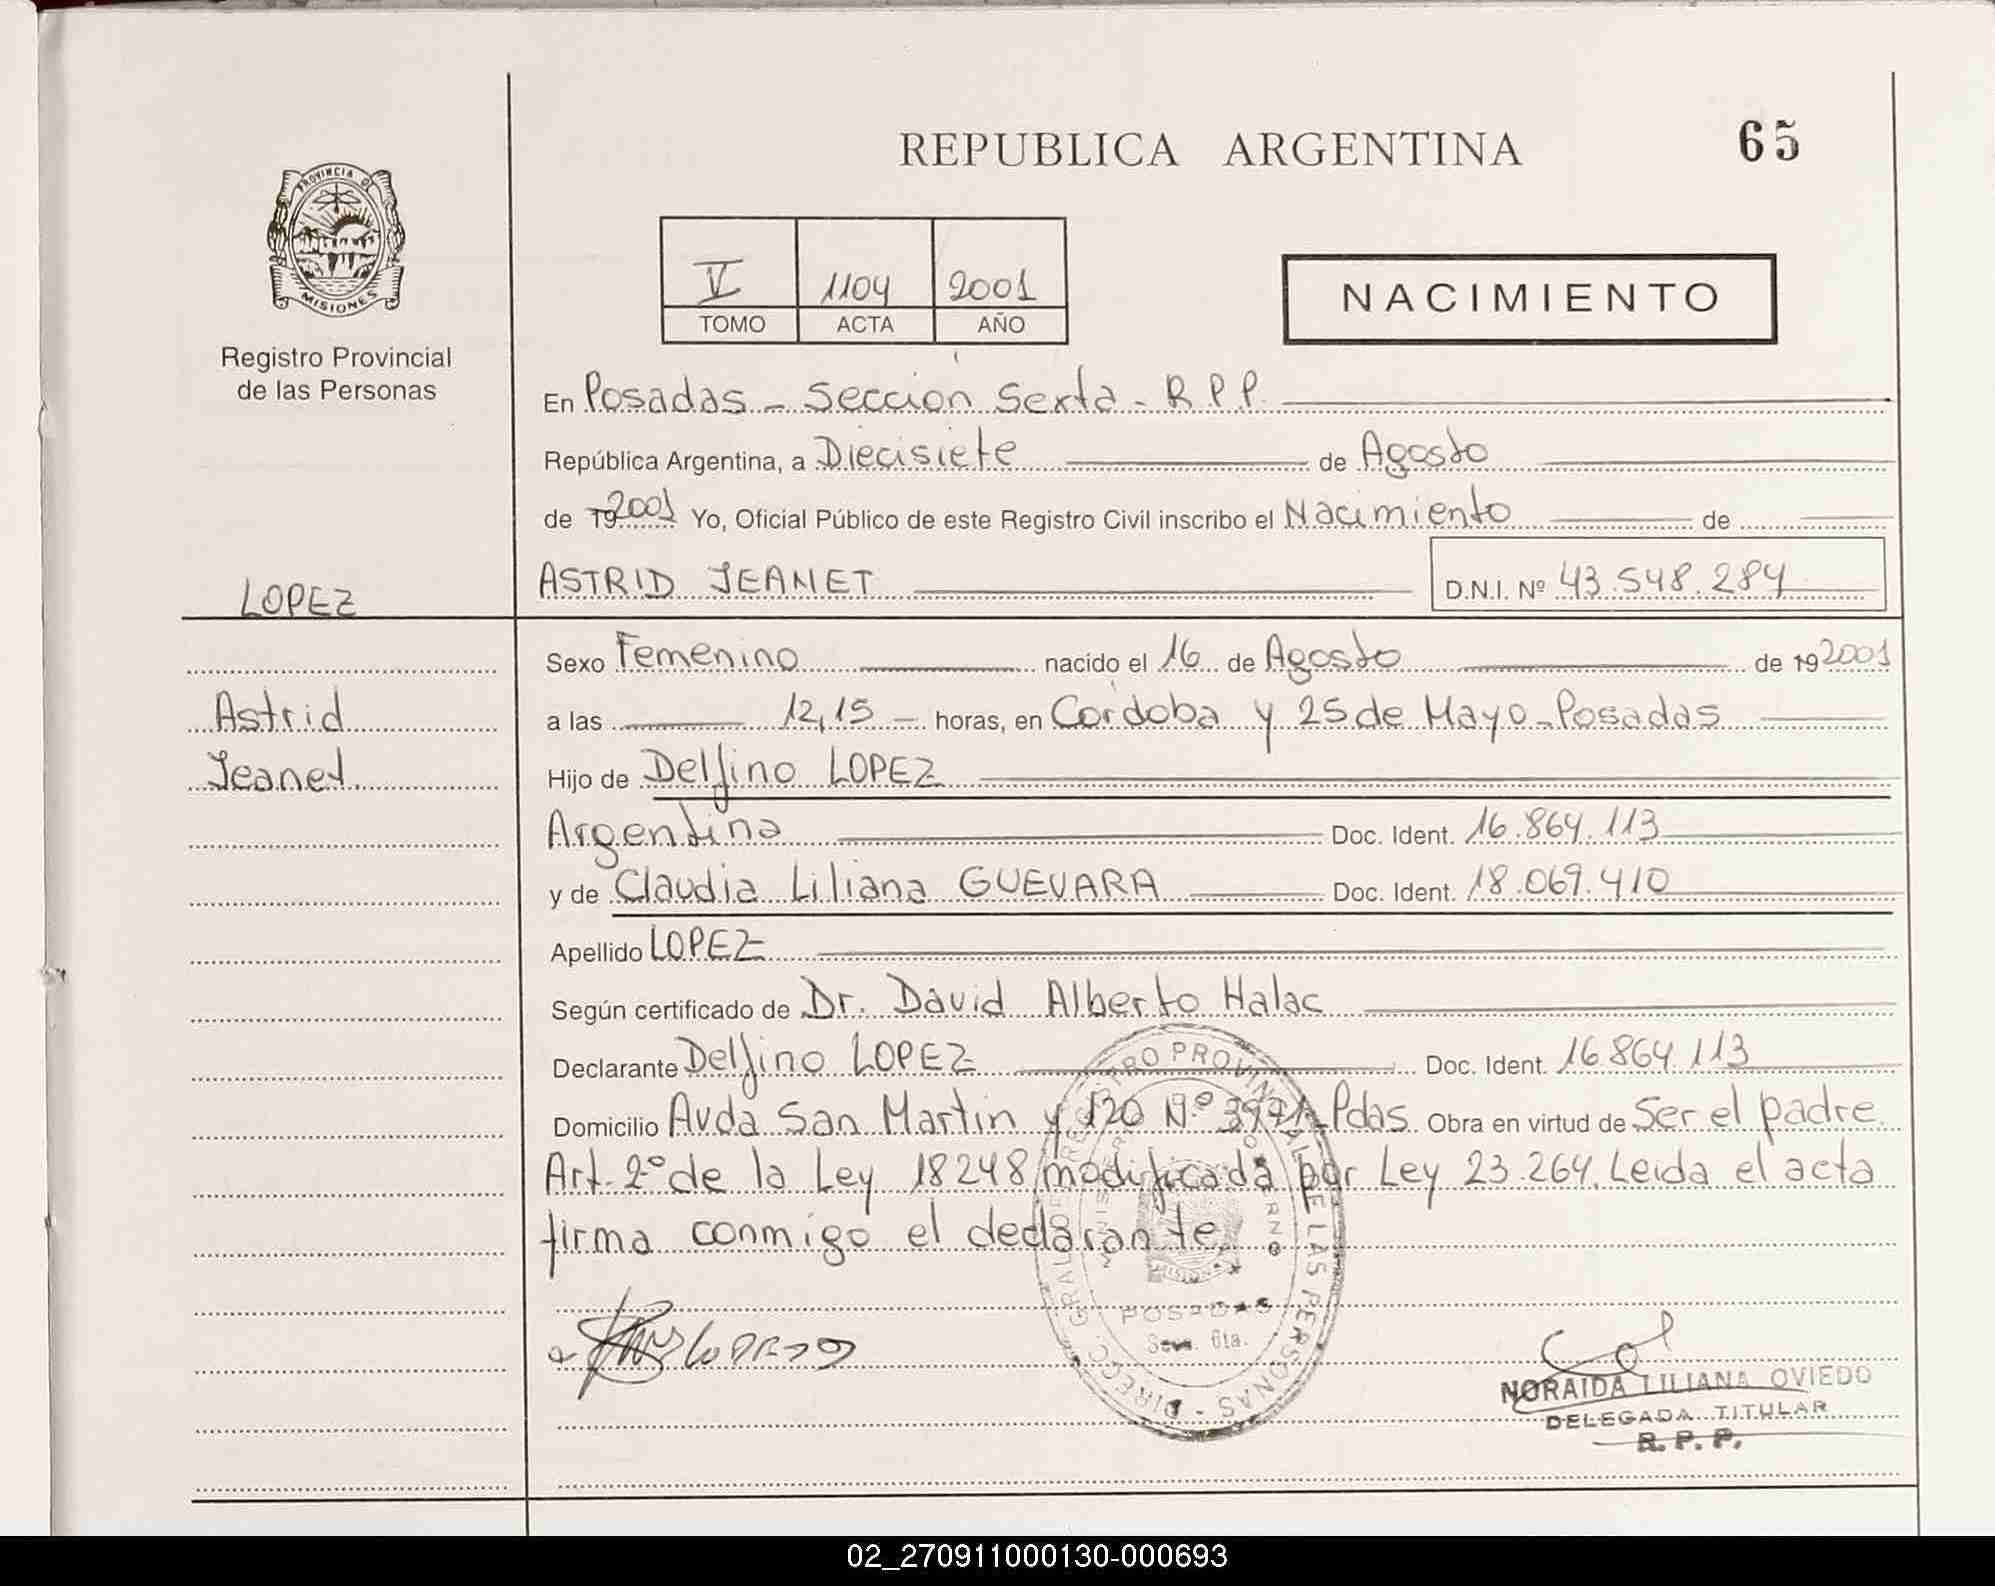 REPUBLICA ARGENTINA
65
PROVINCIA DE
MISIONES
Registro Provincial
de las Personas
V 1104 2001
TOMO ACTA AÑO
NACIMIENTO
En Posadas - Sección Sexta - R.P.P.
República Argentina, a Diecisiete de Agosto
de 19 2001 Yo, Oficial Público de este Registro Civil inscribo el Nacimiento de
ASTRID JEANET D.N.I. Nº 43.548.284
LOPEZ
Astrid
Jeanet
Sexo Femenino nacido el 16 de Agosto de 19 2001
a las 12,15 - horas, en Córdoba y 25 de Mayo - Posadas
Hijo de Delfino LOPEZ
Argentina Doc. Ident. 16.864.113
y de Claudia Liliana GUEVARA Doc. Ident. 18.069.410
Apellido LOPEZ
Según certificado de Dr. David Alberto Halac
Declarante Delfino LOPEZ Doc. Ident. 16.864.113
Domicilio Avda San Martin y 120 Nº 3971 - Pdas. Obra en virtud de Ser el padre
Art. 2º de la Ley 18248 modificada por Ley 23.264. Leida el acta
firma conmigo el declarante.
DIRECC. GRAL DE REGISTRO PROVINCIAL DE LAS PERSONAS
POSADAS
Secc. 6ta.
NORAIDA LILIANA OVIEDO
DELEGADA TITULAR
R. P. P.
02_270911000130-000693